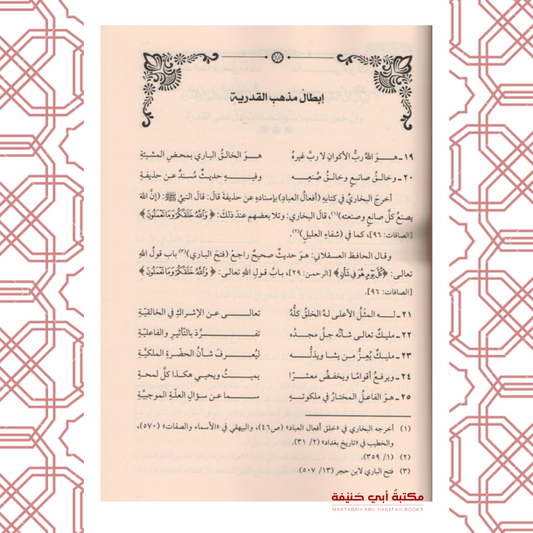 إبطال مذهب القدرية
١٩ـ هـو اللهُ ربُّ الأكوانِ لا ربَّ غيرهُ هـو الخالقُ الباري بمحضِ المشيئةِ
٢٠ـ وخالقُ صانعٍ وخالقُ صُنعِـه وفيـه حديثٌ مُسندٌ عن حذيفةِ
أخرجَ البخاريُّ في كتابِهِ (أفعال العباد) بإسنادِهِ عن حذيفةَ قالَ: قالَ النبيُّ ﷺ: (إنَّ اللهَ
يصنعُ كلَّ صانعٍ وصنعتَه)(١)، قالَ البخاري: وتلا بعضهم عندَ ذلكَ: ﴿وَاللَّهُ خَلَقَكُمْ وَمَا تَعْمَلُونَ﴾
[الصافات: ٩٦]، كما في (شفاء العليل)(٢).
وقال الحافظ العسقلاني: هو حديثٌ صحيحٌ راجعْ (فتحَ الباري)(٣) باب قولِ اللهِ
تعالى: ﴿كُلَّ يَوْمٍ هُوَ فِي شَأْنٍ﴾ [الرحمن: ٢٩]، بـابُ قولِ اللهِ تعالى: ﴿وَاللَّهُ خَلَقَكُمْ وَمَا تَعْمَلُونَ﴾
[الصافات: ٩٦].
٢١ـ لـه المثلُ الأعلى لهُ الخلقُ كلُّهُ تعالى عن الإشراكِ في الخالقيَّةِ
٢٢ـ مليكٌ تعالى شأنُه جلَّ مجدُه تفـرَّدَ بالتأثيرِ والفاعليَّةِ
٢٣ـ مليكٌ يُعِزُّ مـن يشا ويذلُّـه ليُعـرفَ شأنُ الحضْرةِ الملكيَّةِ
٢٤ـ ويرفعُ أقوامًا ويخفضُ معشرًا يميتُ ويحيي هكذا كلَّ لمحةِ
٢٥ـ هوَ الفاعلُ المختارُ في ملكوتِـهِ سما عن سؤالِ العلَّةِ الموجبيَّةِ
(١) أخرجه البخاري في «خلق أفعال العباد» (ص٤٦)، والبيهقي في «الأسماء والصفات» (٥٧٠)،
والخطيب في «تاريخ بغداد» (٢/ ٣١).
(٢) (١/ ٣٥٩).
(٣) فتح الباري لابن حجر (١٣/ ٥٠٧).
مكتبة أبي حنيفة
MAKTABAH ABU HANIFAH BOOKS